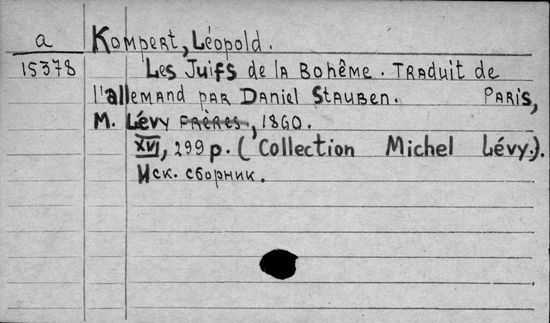 a Kompert, Léopold.
15378 Les Juifs de la Bohême. Traduit de
l'allemand par Daniel Stauben. Paris,
M. Lévy frères, 1860.
XVI, 299 p. (Collection Michel Lévy.).
Иск. сборник.